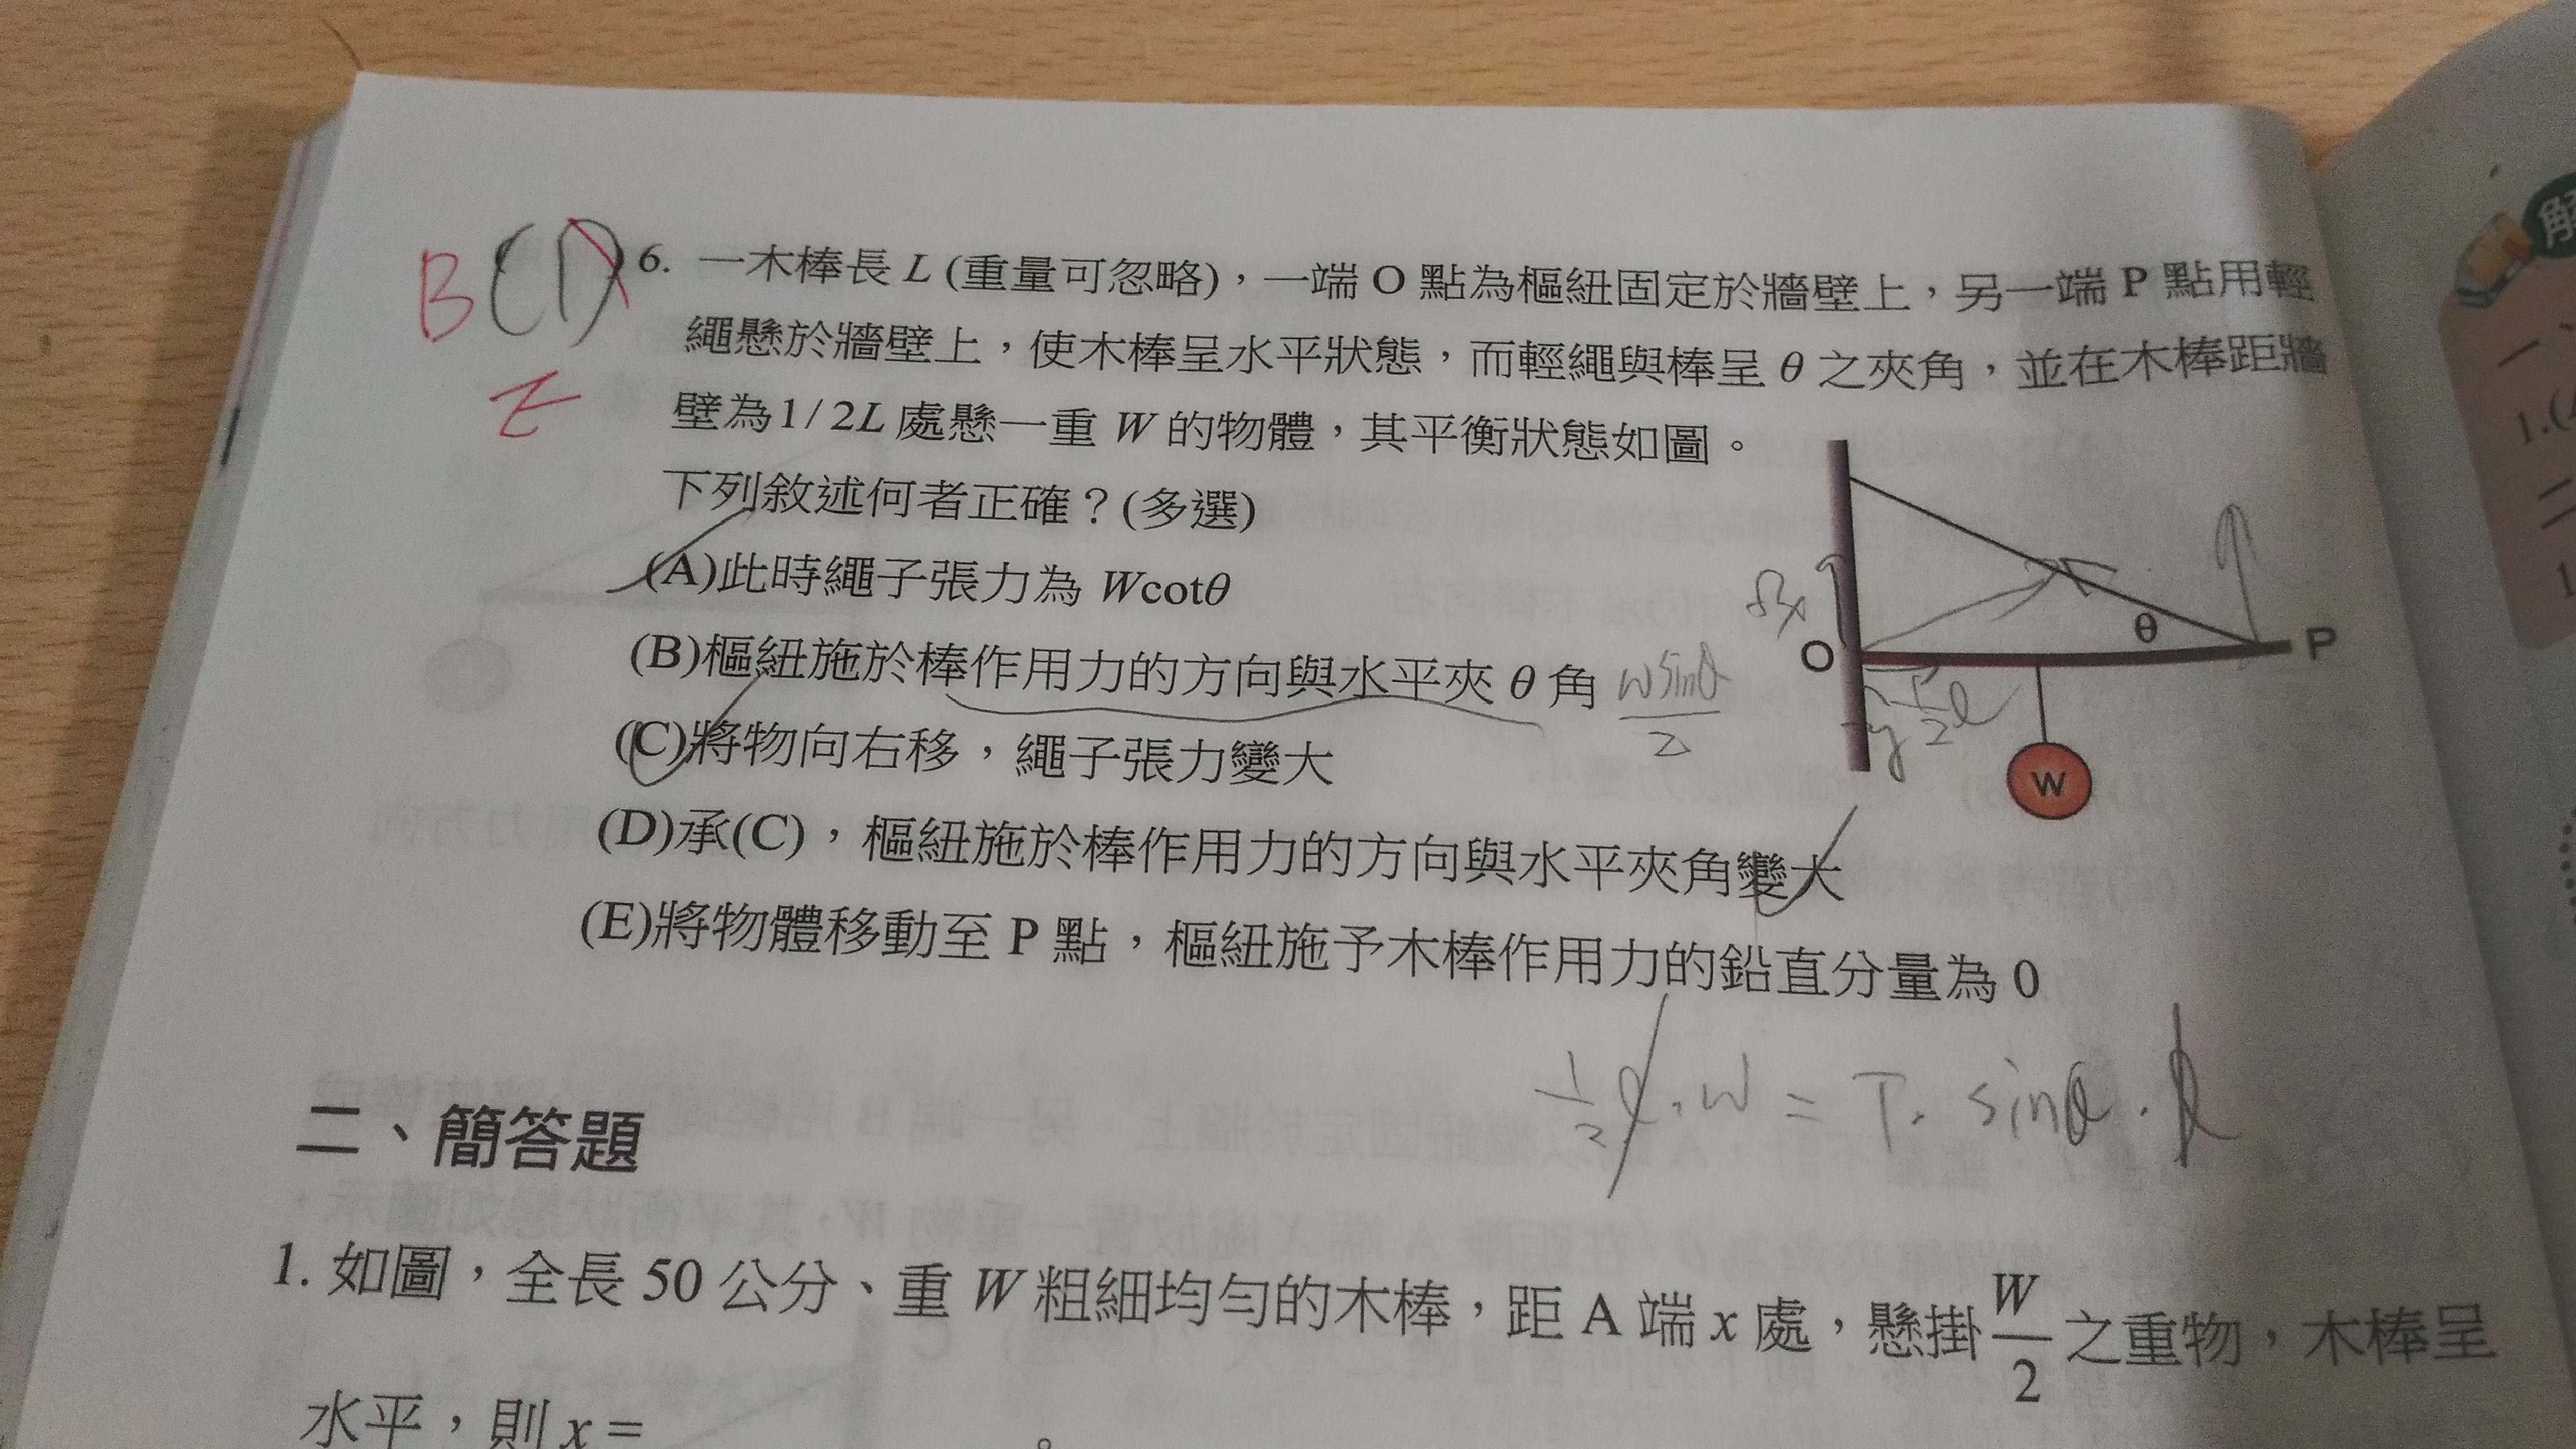 B(D) 6. 一木棒長 L (重量可忽略)，一端 O 點為樞紐固定於牆壁上，另一端 P 點用輕
E
繩懸於牆壁上，使木棒呈水平狀態，而輕繩與棒呈 θ 之夾角，並在木棒距牆
壁為1/2L 處懸一重 W 的物體，其平衡狀態如圖。
下列敘述何者正確？(多選)
(A)此時繩子張力為 Wcotθ
(B)樞紐施於棒作用力的方向與水平夾 θ 角
Wsinθ/2
(C)將物向右移，繩子張力變大
(D)承(C)，樞紐施於棒作用力的方向與水平夾角變大
(E)將物體移動至 P 點，樞紐施予木棒作用力的鉛直分量為 0
O
θ
P
1/2 ℓ
W
1/2 ℓ · W = T · sinθ · ℓ
二、簡答題
1. 如圖，全長 50 公分、重 W 粗細均勻的木棒，距 A 端 x 處，懸掛 W/2 之重物，木棒呈
水平，則 x = 。
解
一
1.(
二
1